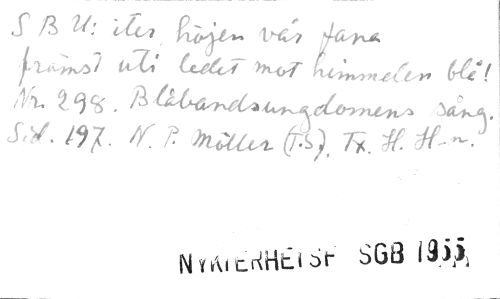 S B U: ites höjen vår fana
främst uti ledet mot himmelen blå!
Nr. 298. Blåbandsungdomens sång.
Sid. 197. N. P. Möller (T.S). Tx. H. H-n.
NYKTERHETSF SGB 1955